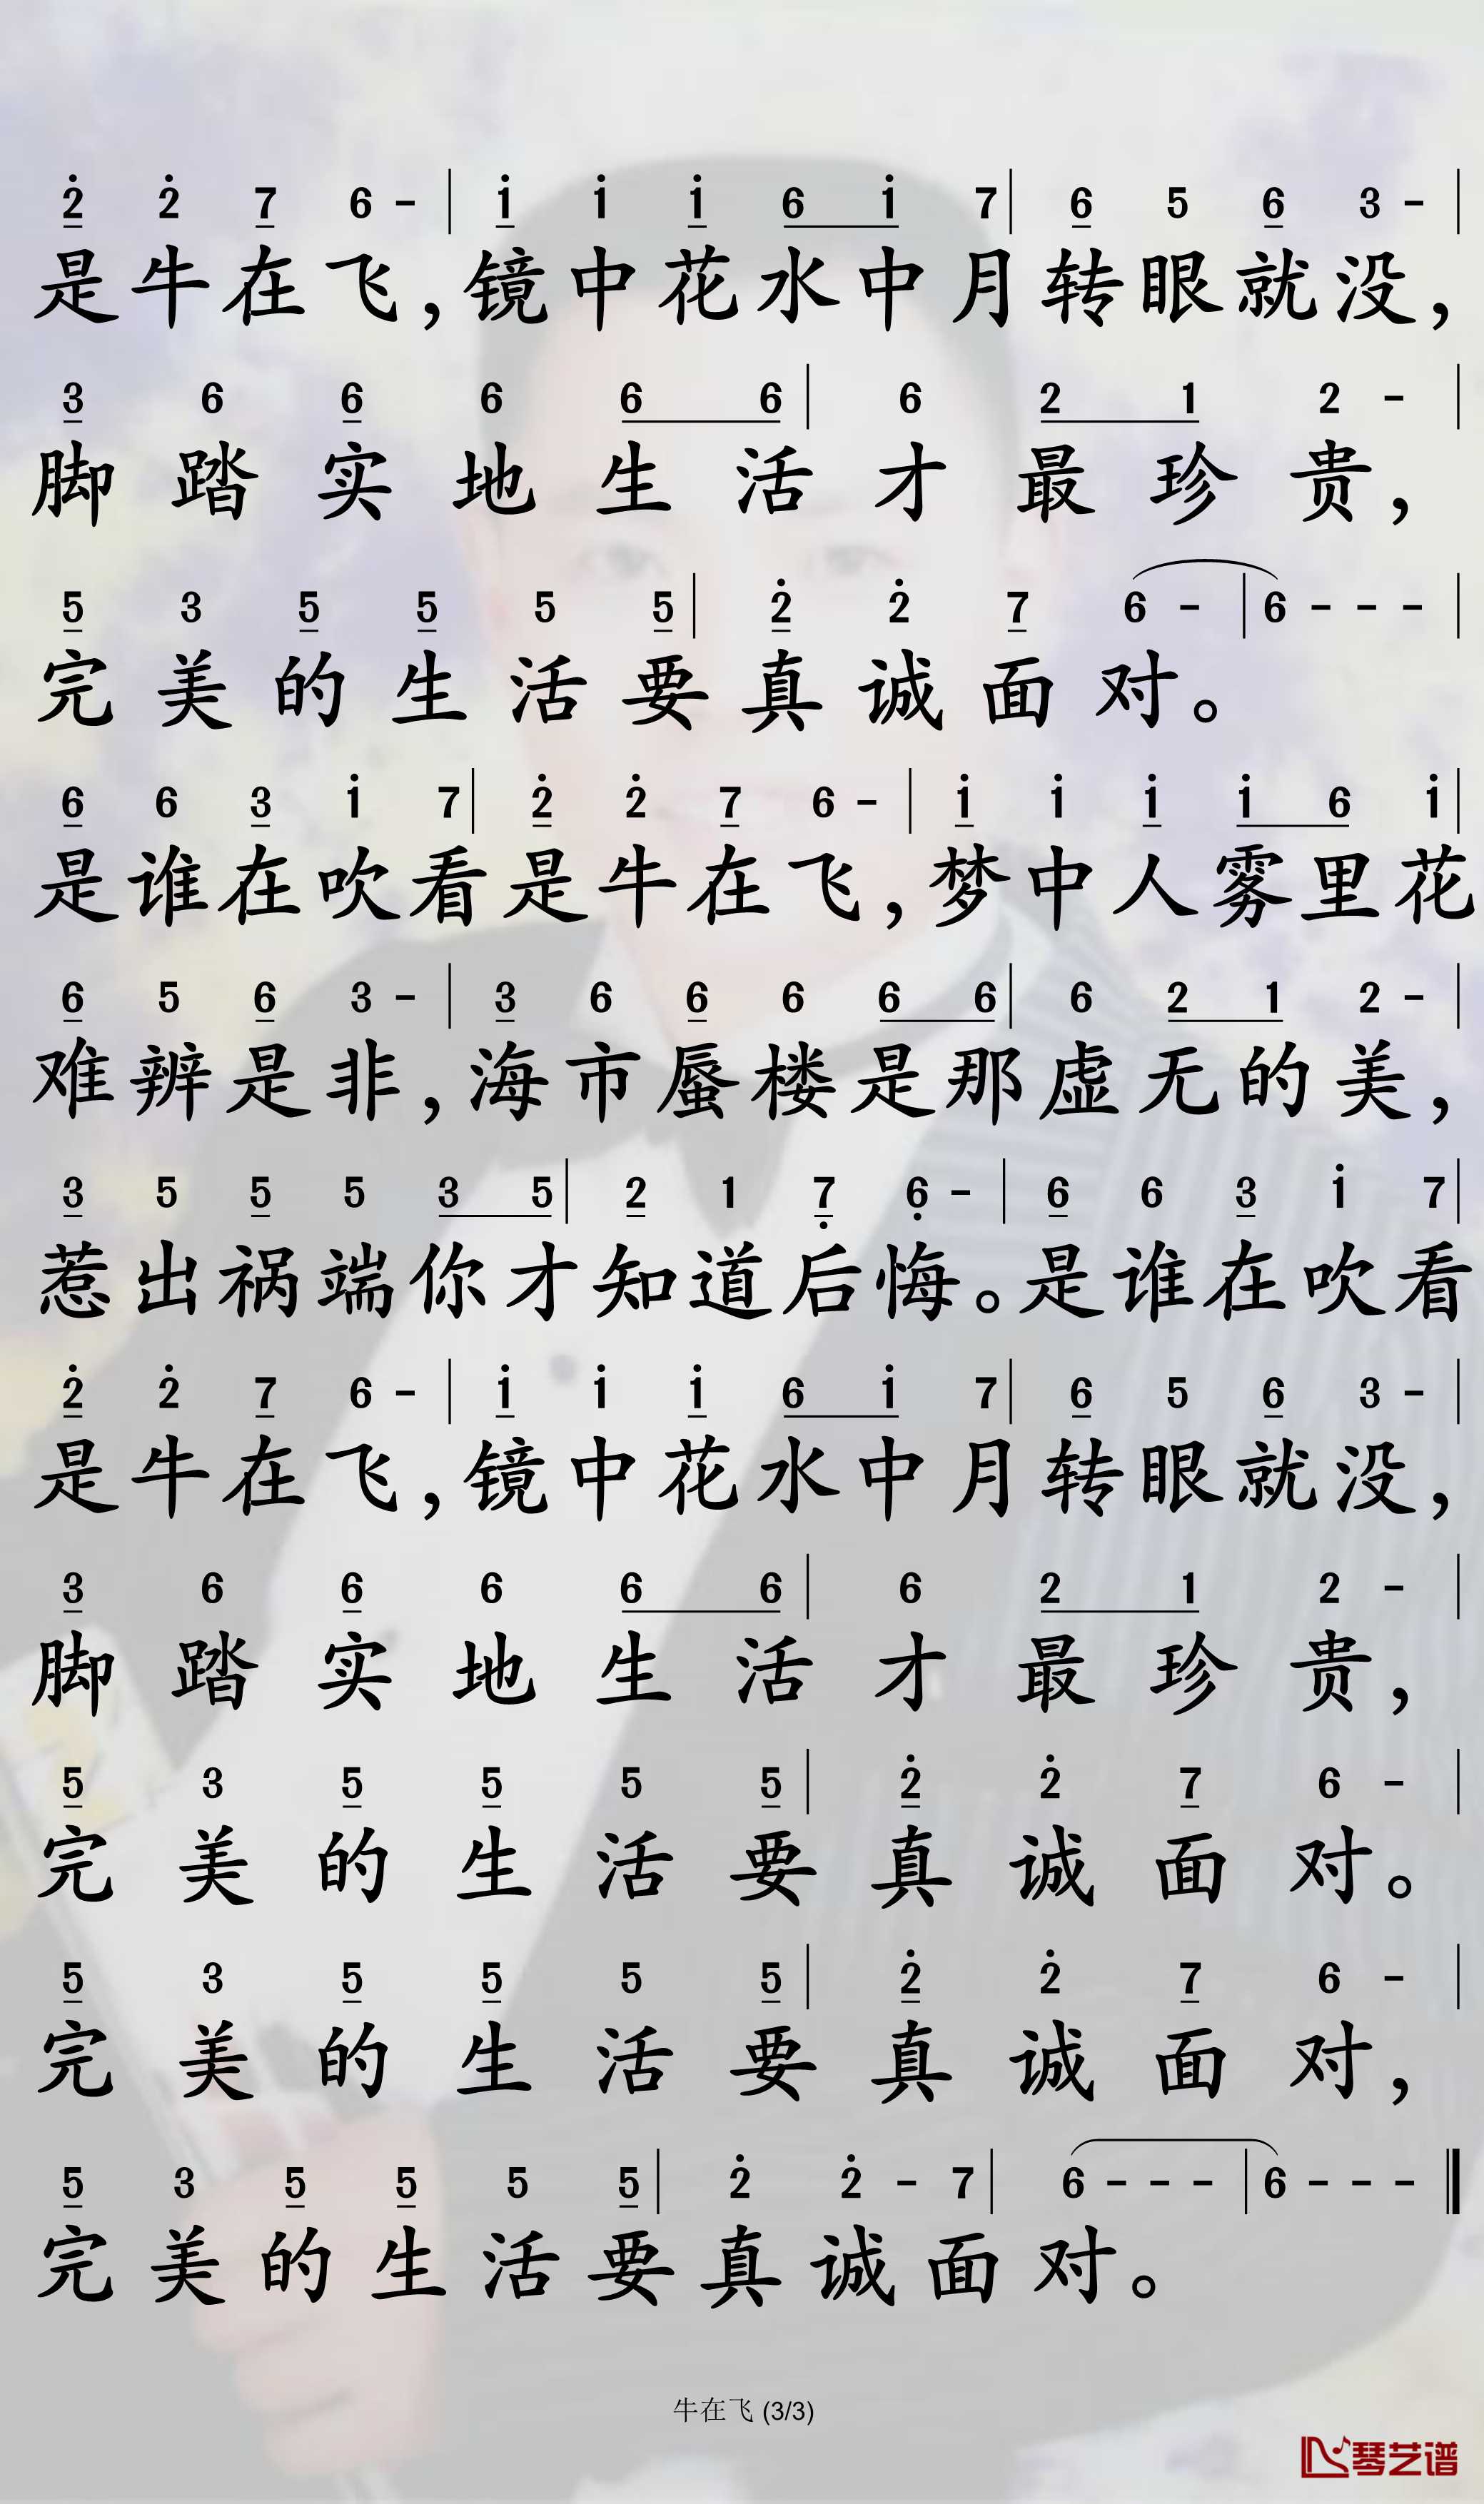 2̲̇ 2̇ 7̲ 6 - | 1̲̇ 1̇ 1̲̇ 6̲ 1̲̇ 7 | 6̲ 5 6̲ 3 - |
是牛在飞，镜中花水中月转眼就没，
3̲ 6 6̲ 6 6̲ 6̲ | 6 2̲ 1̲ 2 - |
脚踏实地生活才最珍贵，
5̲ 3 5̲ 5̲ 5 5̲ | 2̲̇ 2̇ 7̲ 6 - | 6 - - - |
完美的生活要真诚面对。
6̲ 6 3̲ 1̇ 7 | 2̲̇ 2̇ 7̲ 6 - | 1̲̇ 1̇ 1̲̇ 1̲̇ 6̲ 1̇ |
是谁在吹看是牛在飞，梦中人雾里花
6̲ 5 6̲ 3 - | 3̲ 6 6̲ 6 6̲ 6̲ | 6 2̲ 1̲ 2 - |
难辨是非，海市蜃楼是那虚无的美，
3̲ 5 5̲ 5 3̲ 5̲ | 2̲ 1 7̲̣ 6̣ - | 6̲ 6 3̲ 1̇ 7 |
惹出祸端你才知道后悔。是谁在吹看
2̲̇ 2̇ 7̲ 6 - | 1̲̇ 1̇ 1̲̇ 6̲ 1̲̇ 7 | 6̲ 5 6̲ 3 - |
是牛在飞，镜中花水中月转眼就没，
3̲ 6 6̲ 6 6̲ 6̲ | 6 2̲ 1̲ 2 - |
脚踏实地生活才最珍贵，
5̲ 3 5̲ 5̲ 5 5̲ | 2̲̇ 2̇ 7̲ 6 - |
完美的生活要真诚面对。
5̲ 3 5̲ 5̲ 5 5̲ | 2̲̇ 2̇ 7̲ 6 - |
完美的生活要真诚面对，
5̲ 3 5̲ 5̲ 5 5̲ | 2̇ 2̇ - 7 | 6 - - - | 6 - - - ‖
完美的生活要真诚面对。
牛在飞 (3/3)
琴艺谱